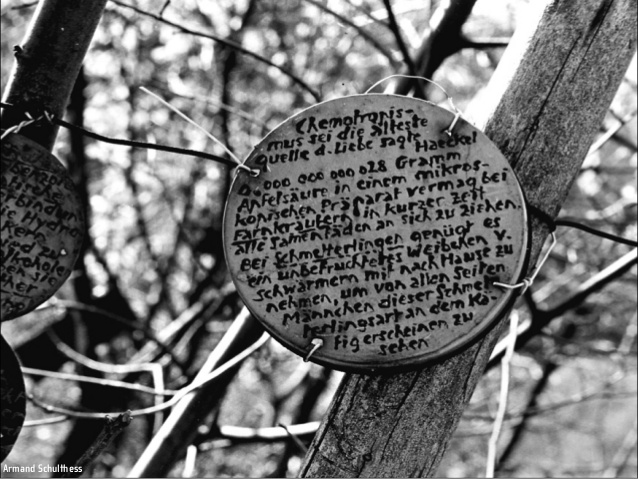 Chemotropis-
mus sei die älteste
quelle d. Liebe sagte Haeckel
0.000 000 000 028 Gramm
Apfelsäure in einem mikros-
kopischen Präparat vermag bei
Farnkräutern in kurzer Zeit
alle Samenfäden an sich zu ziehen.
Bei Schmetterlingen genügt es
ein unbefruchtetes Weibchen v.
Schwärmern mit nach Hause zu
nehmen, um von allen Seiten
Männchen dieser Schmet-
terlingsart an dem Kä-
fig erscheinen zu
sehen
Armand Schulthess